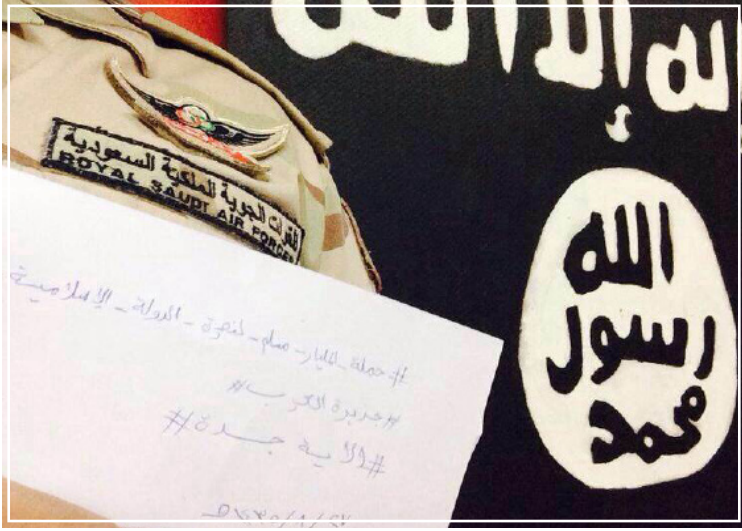 له إلا الله
القوات الجوية الملكية السعودية
ROYAL SAUDI AIR FORCES
الله
رسول
محمد
#حملة_المليار_مسلم_لنصرة_الدولة_الإسلامية
#جزيرة العرب#
#ولاية جدة#